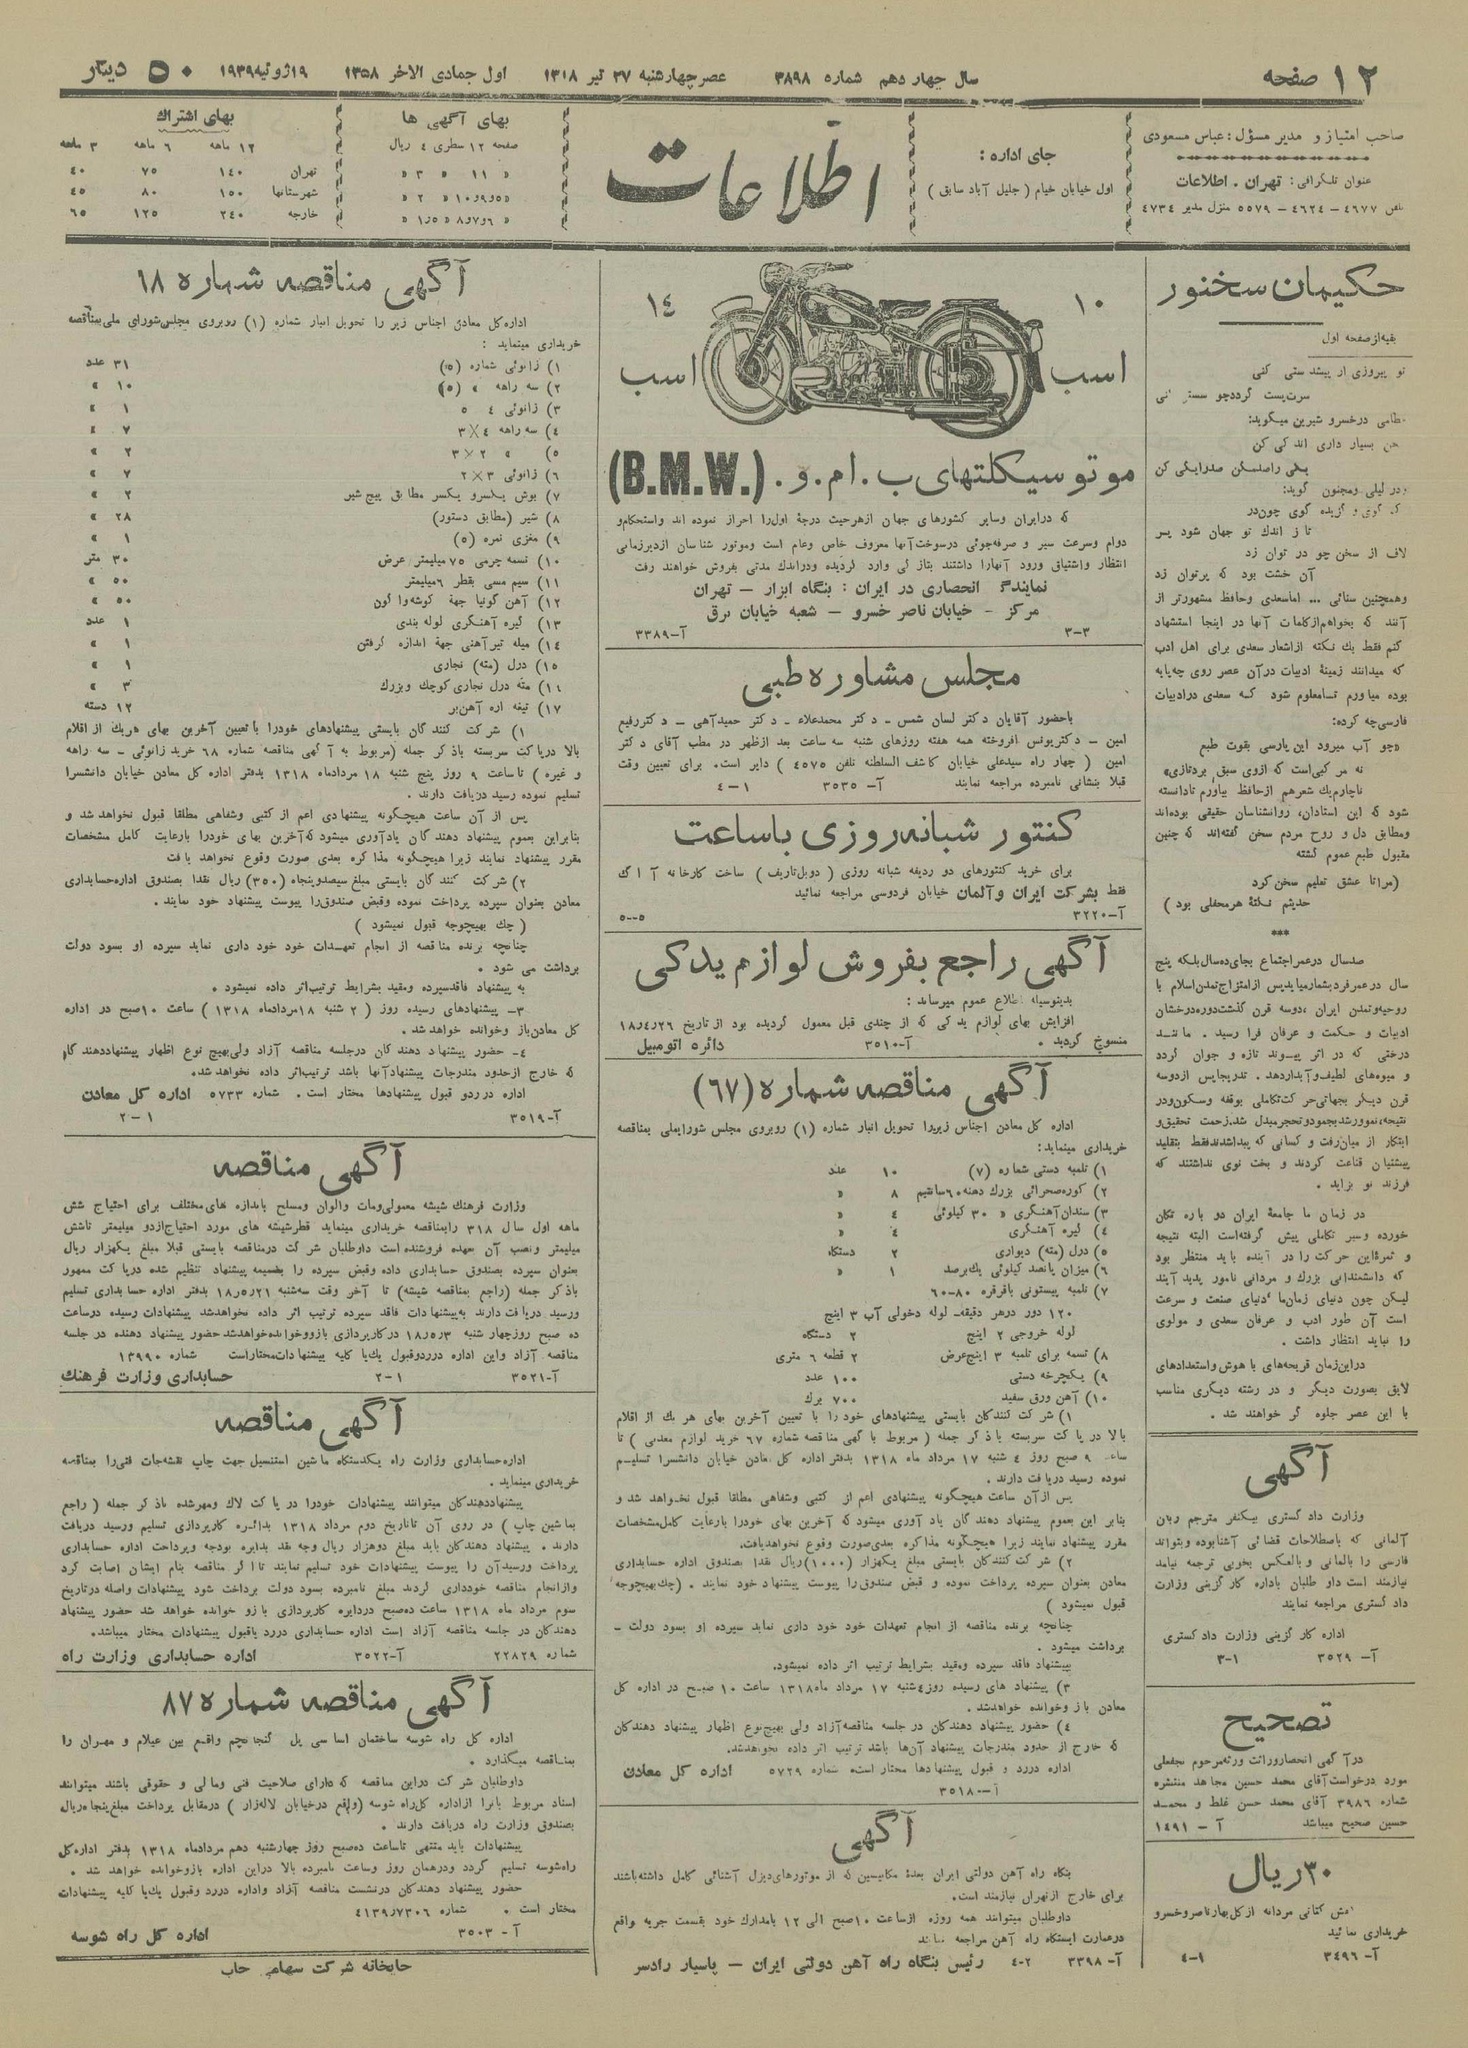 ۱۲ صفحه
سال چهاردهم شماره ۳۸۹۸
عصر چهارشنبه ۲۷ تیر ۱۳۱۸
اول جمادی الاخر ۱۳۵۸
۱۹ ژوئیه ۱۹۳۹
۵۰ دینار
صاحب امتیاز و مدیر مسؤل: عباس مسعودی
عنوان تلگرافی: تهران. اطلاعات
تلفن ۴۶۷۷ - ۴۶۲۴ - ۵۵۷۹ منزل مدیر ۴۷۳۴
جای اداره:
اول خیابان خیام (جلیل آباد سابق)
اطلاعات
بهای آگهی ها
صفحه ۱۲ سطری ۴ ریال
» ۱۱ » ۳ »
» ۵و۹و۱۰ » ۲ »
» ۶و۷و۸ » ۱٫۵ »
بهای اشتراك
۱۲ ماهه ۶ ماهه ۳ ماهه
تهران ۱۴۰ ۷۵ ۴۰
شهرستانها ۱۵۰ ۸۰ ۴۵
خارجه ۲۴۰ ۱۲۵ ۶۵
حکیمان سخنور
بقیه از صفحه اول
سرت‌پست گردد چو سستی کنی
نظامی در خسرو شیرین میگوید:
یکی را صد مکن صد را یکی کن
در لیلی و مجنون گوید:
تا ز اندك تو جهان شود پر
لاف از سخن چو در توان زد
آن خشت بود که پر توان زد
وهمچنین سنائی ... اما سعدی وحافظ مشهورتر از
آنند که بخواهم از کلمات آنها در اینجا استشهاد
کنم فقط یك نکته از اشعار سعدی برای اهل ادب
که میدانند زمینهٔ ادبیات در آن عصر روی چه پایه
بوده میاورم تا معلوم شود که سعدی در ادبیات
فارسی چه کرده:
«چو آب میرود این پارسی بقوت طبع
نه مرکبی است که از وی سبق برد تازی»
ناچارم یك شعر هم از حافظ بیاورم تا دانسته
شود که این استادان، روانشناسان حقیقی بوده‌اند
ومطابق دل و روح مردم سخن گفته‌اند که چنین
مقبول طبع عموم گشته
(مرا تا عشق تعلیم سخن کرد
حدیثم نکتهٔ هر محفلی بود)
***
صد سال در عمر اجتماع بجای ده سال بلکه پنج
سال در عمر فرد بشمار میاید پس از امتزاج تمدن اسلام با
روحیه وتمدن ایران، دوسه قرن گذشت دوره درخشان
ادبیات و حکمت و عرفان فرا رسید. مانند
درختی که در اثر پیوند تازه و جوان گردد
و میوه‌های لطیف و آبدار دهد. تدریجا پس از دوسه
قرن دیگر بجهاتی حرکت تکاملی بوقفه وسکون ودر
نتیجه، نمو و رشد بجمود و تحجر مبدل شد. زحمت تحقیق و
ابتکار از میان رفت و کسانی که پیدا شدند فقط بتقلید
پیشینیان قناعت کردند و بخت نوی نداشتند که
فرزند نو بزاید.
در زمان ما جامعهٔ ایران دو باره تکان
خورده وسیر تکاملی پیش گرفته‌است البته نتیجه
و ثمرهٔ این حرکت را در آینده باید منتظر بود
که دانشمندانی بزرك و مردانی نامور پدید آیند
لیکن چون دنیای زمان ما دنیای صنعت و سرعت
است آن طور ادب و عرفان سعدی و مولوی
را نباید انتظار داشت.
در این زمان قریحه‌های با هوش واستعدادهای
لایق بصورت دیگر و در رشته دیگری مناسب
با این عصر جلوه گر خواهند شد.
آگهی
وزارت دادگستری بیکنفر مترجم زبان
آلمانی که باصطلاحات قضائی آشنا بوده و بتواند
فارسی را بالمانی و بالعکس بخوبی ترجمه نماید
نیازمند است داو طلبان باداره کارگزینی وزارت
دادگستری مراجعه نمایند
اداره کار گزینی وزارت دادگستری
آ- ۳۵۲۹ ۳-۱
تصحیح
در آگهی انحصار وراثت ورثه مرحوم نجفعلی
مورد درخواست آقای محمد حسین مجاهد منتشره
شماره ۳۹۸۶ آقای محمد حسن غلط و محمد
حسین صحیح میباشد آ - ۱۴۹۱
۳۰ ریال
کفش کتانی مردانه از کل بهار ناصرخسرو
خریداری نمائید
آ- ۳۴۹۶ ۴-۱
۱۰ اسب
۱۴ اسب
موتوسیکلتهای ب. ام. و. (B.M.W.)
که در ایران وسایر کشورهای جهان از هر حیث درجهٔ اول را احراز نموده اند واستحکام و
دوام وسرعت سیر و صرفه‌جوئی در سوخت آنها معروف خاص وعام است وموتور شناسان از دیر زمانی
انتظار واشتیاق ورود آنها را داشتند بتازگی وارد گردیده ودر اندك مدتی بفروش خواهند رفت
نمایندگی انحصاری در ایران: بنگاه ابزار – تهران
مرکز – خیابان ناصر خسرو – شعبه خیابان برق
۳-۳ آ-۳۳۸۹
مجلس مشاوره طبی
با حضور آقایان دکتر لسان شمس - دکتر محمد علاء - دکتر حمید آهی - دکتر رفیع
امین - دکتر یونس افروخته همه هفته روزهای شنبه سه ساعت بعد از ظهر در مطب آقای دکتر
امین (چهار راه سید علی خیابان کاشف السلطنه تلفن ۴۵۷۵) دایر است. برای تعیین وقت
قبلا بنشانی نامبرده مراجعه نمایند آ- ۳۵۳۵ ۴-۱
کنتور شبانه روزی با ساعت
برای خرید کنتورهای دو ردیفه شبانه روزی (دوبل تاریف) ساخت کارخانه آ ا گ
فقط بشرکت ایران و آلمان خیابان فردوسی مراجعه نمائید
آ-۳۲۲۰ ۵-۵
آگهی راجع بفروش لوازم یدکی
بدینوسیله اطلاع عموم میرساند:
افزایش بهای لوازم یدکی که از چندی قبل معمول گردیده بود از تاریخ ۱۸٫۴٫۲۶
منسوخ گردید. آ-۳۵۱۰ دائره اتومبیل
آگهی مناقصه شماره (۶۷)
اداره کل معادن اجناس زیر را تحویل انبار شماره (۱) روبروی مجلس شورایملی بمناقصه
خریداری مینماید:
۱) تلمبه دستی شماره (۷) ۱۰ عدد
۲) کوره صحرائی بزرك دهنه ۶۰ سانتیم ۸ »
۳) سندان آهنگری » ۳۰ کیلوئی ۴ »
۴) گیره آهنگری ۴ »
۵) درل (مته) دیواری ۲ دستگاه
۶) میزان پانصد کیلوئی یك برصد ۱ »
۷) تلمبه پیستونی با قرقره ۸۰-۶۰
۱۲۰ دور در هر دقیقه- لوله دخولی آب ۳ اینچ
لوله خروجی ۲ اینچ ۲ دستگاه
۸) تسمه برای تلمبه ۳ اینچ عرض ۲ قطعه ۶ متری
۹) یکچرخه دستی ۱۰۰ عدد
۱۰) آهن ورق سفید ۷۰۰ برك
۱) شرکت کنندگان بایستی پیشنهادهای خود را با تعیین آخرین بهای هر یك از اقلام
بالا در پاکت سربسته با ذکر جمله (مربوط با گهی مناقصه شماره ۶۷ خرید لوازم معدنی) تا
ساعت ۹ صبح روز ۴ شنبه ۱۷ مرداد ماه ۱۳۱۸ بدفتر اداره کل معادن خیابان دانشسرا تسلیم
نموده رسید دریافت دارند.
پس از آن ساعت هیچگونه پیشنهادی اعم از کتبی وشفاهی مطلقا قبول نخواهد شد و
بنابر این بعموم پیشنهاد دهندگان یاد آوری میشود که آخرین بهای خود را با رعایت کامل مشخصات
مقرر پیشنهاد نمایند زیرا هیچگونه مذاکره بعدی صورت وقوع نخواهد یافت.
۲) شرکت کنندگان بایستی مبلغ یکهزار (۱۰۰۰) ریال نقدا بصندوق اداره حسابداری
معادن بعنوان سپرده پرداخت نموده و قبض صندوق را پیوست پیشنهاد خود نمایند. (چك بهیچوجه
قبول نمیشود)
چنانچه برنده مناقصه از انجام تعهدات خود خود داری نماید سپرده او بسود دولت
برداشت میشود.
بپیشنهاد فاقد سپرده و مقید بشرایط ترتیب اثر داده نمیشود.
۳) پیشنهاد های رسیده روز ۴ شنبه ۱۷ مرداد ماه ۱۳۱۸ ساعت ۱۰ صبح در اداره کل
معادن باز وخوانده خواهد شد.
۴) حضور پیشنهاد دهندگان در جلسه مناقصه آزاد ولی بهیچ نوع اظهار پیشنهاد دهندگان
که خارج از حدود مندرجات پیشنهاد آنها باشد ترتیب اثر داده نخواهد شد.
اداره در رد و قبول پیشنهادها مختار است. شماره ۵۷۲۹ اداره کل معادن
آ-۳۵۱۸
آگهی
بنگاه راه آهن دولتی ایران بعدهٔ مکانیسین که از موتورهای دیزل آشنائی کامل داشته باشند
برای خارج از تهران نیازمند است.
داوطلبان میتوانند همه روزه از ساعت ۱۰ صبح الی ۱۲ با مدارك خود بقسمت جریه واقع
در عمارت ایستگاه راه آهن مراجعه نمایند
آ- ۳۳۹۸ ۴-۲ رئیس بنگاه راه آهن دولتی ایران – پاسیار رادسر
آگهی مناقصه شماره ۶۸
اداره کل معادن اجناس زیر را تحویل انبار شماره (۱) روبروی مجلس شورای ملی بمناقصه
خریداری مینماید:
۱) زانوئی شماره (۵) ۳۱ عدد
۲) سه راهه » (۵) ۱۰ »
۳) زانوئی ۴ ۵ ۱ »
۴) سه راهه ۴×۳ ۷ »
۵) » ۲×۳ ۲ »
۶) زانوئی ۳×۲ ۷ »
۷) بوش یکسرو یکسر مطابق پیچ شیر ۲ »
۸) شیر (مطابق دستور) ۲۸ »
۹) مغزی نمره (۵) ۱ »
۱۰) تسمه چرمی ۷۵ میلیمتر عرض ۳۰ متر
۱۱) سیم مسی بقطر ۶ میلیمتر ۵۰ »
۱۲) آهن گونیا جهة گوشه واگون ۵۰ »
۱۳) گیره آهنگری لوله بندی ۱ عدد
۱۴) میله تیر آهنی جهة اندازه گرفتن ۱ »
۱۵) درل (مته) نجاری ۱ »
۱۶) مته درل نجاری کوچك و بزرك ۳ »
۱۷) تیغه اره آهن بر ۱۲ دسته
۱) شرکت کنندگان بایستی پیشنهادهای خود را با تعیین آخرین بهای هر یك از اقلام
بالا در پاکت سربسته با ذکر جمله (مربوط به آگهی مناقصه شماره ۶۸ خرید زانوئی - سه راهه
و غیره) تا ساعت ۹ روز پنج شنبه ۱۸ مرداد ماه ۱۳۱۸ بدفتر اداره کل معادن خیابان دانشسرا
تسلیم نموده رسید دریافت دارند.
پس از آن ساعت هیچگونه پیشنهادی اعم از کتبی وشفاهی مطلقا قبول نخواهد شد و
بنابر این بعموم پیشنهاد دهندگان یادآوری میشود که آخرین بهای خود را با رعایت کامل مشخصات
مقرر پیشنهاد نمایند زیرا هیچگونه مذاکره بعدی صورت وقوع نخواهد یافت
۲) شرکت کنندگان بایستی مبلغ سیصد وپنجاه (۳۵۰) ریال نقدا بصندوق اداره حسابداری
معادن بعنوان سپرده پرداخت نموده وقبض صندوق را پیوست پیشنهاد خود نمایند.
(چك بهیچوجه قبول نمیشود)
چنانچه برنده مناقصه از انجام تعهدات خود خود داری نماید سپرده او بسود دولت
برداشت می شود.
به پیشنهاد فاقد سپرده ومقید بشرایط ترتیب اثر داده نمیشود.
۳- پیشنهادهای رسیده روز (۲ شنبه ۱۸ مرداد ماه ۱۳۱۸) ساعت ۱۰ صبح در اداره
کل معادن باز وخوانده خواهد شد.
۴- حضور پیشنهاد دهندگان در جلسه مناقصه آزاد ولی بهیچ نوع اظهار پیشنهاد دهندگان
که خارج از حدود مندرجات پیشنهاد آنها باشد ترتیب اثر داده نخواهد شد.
اداره در ردو قبول پیشنهادها مختار است. شماره ۵۷۳۳ اداره کل معادن
آ-۳۵۱۹ ۲-۱
آگهی مناقصه
وزارت فرهنك شیشه معمولی ومات والوان ومسلح باندازه های مختلف برای احتیاج شش
ماهه اول سال ۳۱۸ را بمناقصه خریداری مینماید قطر شیشه های مورد احتیاج از دو میلیمتر تا شش
میلیمتر ونصب آن بعهده فروشنده است داوطلبان شرکت در مناقصه بایستی قبلا مبلغ یکهزار ریال
بعنوان سپرده بصندوق حسابداری داده وقبض سپرده را بضمیمه پیشنهاد تنظیم شده در پاکت ممهور
با ذکر جمله (راجع بمناقصه شیشه) تا آخر وقت سه شنبه ۱۸٫۵٫۲۱ بدفتر اداره حسابداری تسلیم
ورسید دریافت دارند به پیشنهادات فاقد سپرده ترتیب اثر داده نخواهد شد پیشنهادات رسیده در ساعت
ده صبح روز چهار شنبه ۱۸٫۵٫۳ در کارپردازی باز و خوانده خواهد شد حضور پیشنهاد دهنده در جلسه
مناقصه آزاد واین اداره در رد وقبول یك یا کلیه پیشنهادات مختار است شماره ۱۳۹۹۰
آ-۳۵۲۱ ۲-۱ حسابداری وزارت فرهنك
آگهی مناقصه
اداره حسابداری وزارت راه یکدستگاه ماشین استنسیل جهت چاپ نقشه‌جات فنی را بمناقصه
خریداری مینماید.
پیشنهاد دهندگان میتوانند پیشنهادات خود را در پاکت لاك ومهر شده با ذکر جمله (راجع
بماشین چاپ) در روی آن تا تاریخ دوم مرداد ۱۳۱۸ بدائره کارپردازی تسلیم ورسید دریافت
دارند. پیشنهاد دهندگان باید مبلغ دوهزار ریال وجه نقد بدایره بودجه وپرداخت اداره حسابداری
پرداخت ورسید آن را پیوست پیشنهادات خود تسلیم نمایند تا اگر مناقصه بنام ایشان اصابت کرد
واز انجام مناقصه خودداری کردند مبلغ نامبرده بسود دولت برداشت شود پیشنهادات واصله در تاریخ
سوم مرداد ماه ۱۳۱۸ ساعت ده صبح در دایره کارپردازی باز و خوانده خواهد شد حضور پیشنهاد
دهندگان در جلسه مناقصه آزاد است اداره حسابداری در رد یا قبول پیشنهادات مختار میباشد.
شماره ۲۲۸۲۹ آ-۳۵۲۲ اداره حسابداری وزارت راه
آگهی مناقصه شماره ۸۷
اداره کل راه شوسه ساختمان اساسی پل گنجانچم واقع بین عیلام و مهران را
بمناقصه میگذارد.
داوطلبان شرکت در این مناقصه که دارای صلاحیت فنی ومالی و حقوقی باشند میتوانند
اسناد مربوط بانرا از اداره کل راه شوسه (واقع در خیابان لاله‌زار) در مقابل پرداخت مبلغ پنجاه ریال
بصندوق وزارت راه دریافت دارند.
پیشنهادات باید منتهی تا ساعت ده صبح روز چهارشنبه دهم مرداد ماه ۱۳۱۸ بدفتر اداره کل
راه شوسه تسلیم گردد ودر همان روز وساعت نامبرده بالا در این اداره باز و خوانده خواهد شد.
حضور پیشنهاد دهندگان در نشست مناقصه آزاد واداره در رد وقبول یك یا کلیه پیشنهادات
مختار است. شماره ۴۱۳۹٫۷۳۰۶
آ- ۳۵۰۳ اداره کل راه شوسه
چاپخانه شرکت سهامی چاپ